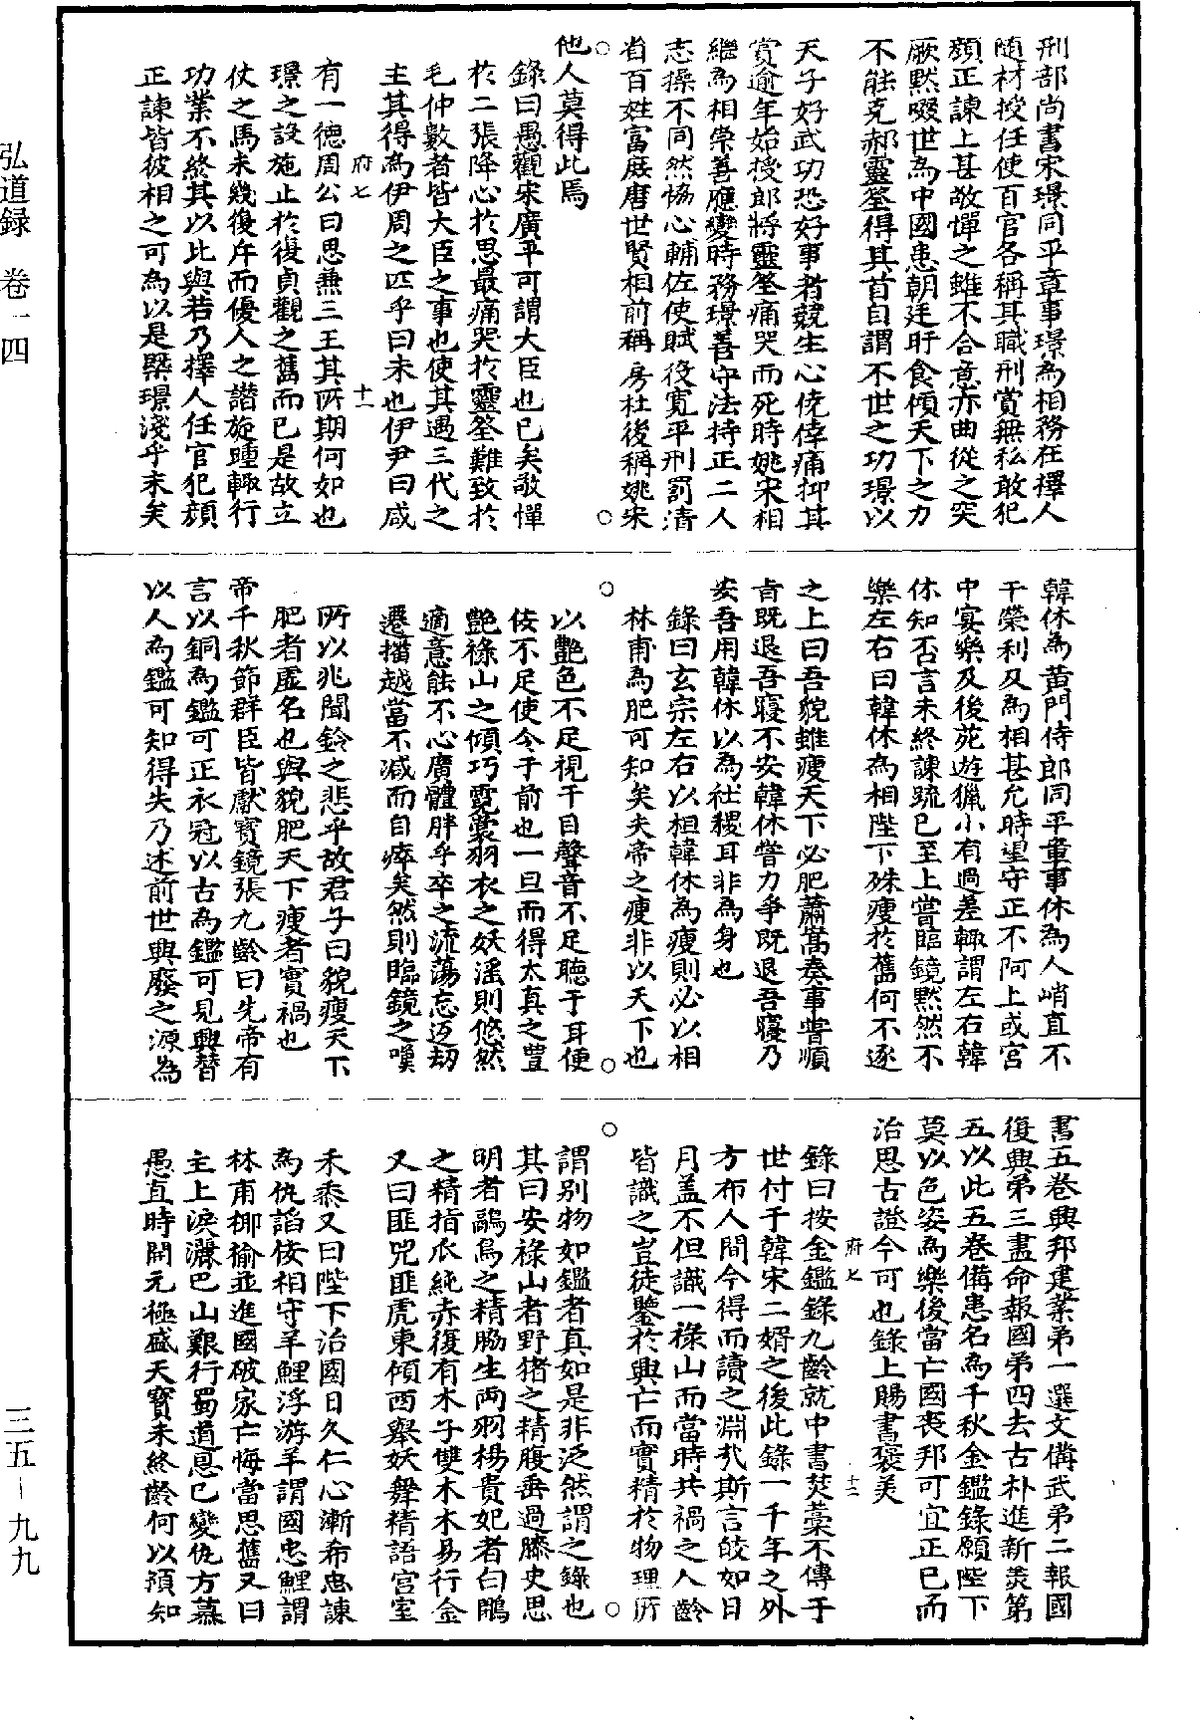 弘道録　卷一四
三五－九九
刑部尚書宋璟同平章事璟為相務在擇人
隨材授任使百官各稱其職刑賞無私敢犯
顏正諫上甚敬憚之雖不合意亦曲從之突
厥默啜世為中國患朝廷旰食傾天下之力
不能克郝靈筌得其首自謂不世之功璟以
天子好武功恐好事者競生心徼倖痛抑其
賞逾年始授郎將靈筌痛哭而死時姚宋相
繼為相崇善應變時務璟善守法持正二人
志操不同然協心輔佐使賦役寬平刑罰清
省百姓富庶唐世賢相前稱房杜後稱姚宋
他人莫得比焉
錄曰愚觀宋廣平可謂大臣也已矣敬憚
於二張降心於思最痛哭於靈筌難致於
毛仲數者皆大臣之事也使其遇三代之
主其得為伊周之匹乎曰未也伊尹曰咸
府七　十一
有一德周公曰思兼三王其所期何如也
璟之設施止於復貞觀之舊而已是故立
仗之馬未幾復斥而優人之譖旋踵輙行
功業不終其以比與若乃擇人任官犯顏
正諫皆彼相之可為以是槩璟淺乎末矣
韓休為黃門侍郎同平章事休為人峭直不
干榮利及為相甚允時望守正不阿上或宮
中宴樂及後苑遊獵小有過差輙謂左右韓
休知否言未終諫疏已至上嘗臨鏡默然不
樂左右曰韓休為相陛下殊瘦於舊何不逐
之上曰吾貌雖瘦天下必肥蕭嵩奏事嘗順
旨既退吾寢不安韓休嘗力爭既退吾寢乃
安吾用韓休以為社稷耳非為身也
錄曰玄宗左右以相韓休為瘦則必以相
林甫為肥可知矣夫帝之瘦非以天下也
以艷色不足視于目聲音不足聽于耳便
佞不足使令于前也一旦而得太真之豐
艷祿山之傾巧霓裳羽衣之妖淫則悠然
適意能不心廣體胖乎卒之流蕩忘返劫
遷描越當不減而自瘁矣然則臨鏡之嘆
所以兆聞鈴之悲乎故君子曰貌瘦天下
肥者虛名也與貌肥天下瘦者實禍也
帝千秋節群臣皆獻寶鏡張九齡曰先帝有
言以銅為鑑可正衣冠以古為鑑可見興替
以人為鑑可知得失乃述前世興廢之源為
書五卷興邦建業第一選文備武第二報國
復興第三盡命報國第四去古朴進新羙第
五以此五卷備患名為千秋金鑑錄願陛下
莫以色姿為樂後當亡國喪邦可宜正己而
治思古證今可也錄上賜書褒美
府七　十二
錄曰按金鑑錄九齡就中書焚藁不傳于
世付于韓宋二婿之後此錄一千年之外
方布人間今得而讀之淵哉斯言皎如日
月盖不但識一祿山而當時共禍之人齡
皆識之豈徒鑒於興亡而實精於物理所
謂別物如鑑者真如是非泛然謂之錄也
其曰安祿山者野猪之精腹垂過膝史思
明者鷊鳥之精脇生两羽楊貴妃者白鵰
之精指爪純赤復有木子雙木木易行金
又曰匪兕匪虎東傾西舉妖舞精語宮室
禾黍又曰陛下治國日久仁心漸希忠諫
為仇謟佞相守羊鯉浮游羊謂國忠鯉謂
林甫揶揄並進國破家亡悔當思舊又曰
主上淚灑巴山艱行蜀道悳已變仇方慕
愚直時開元極盛天寶未終齡何以預知